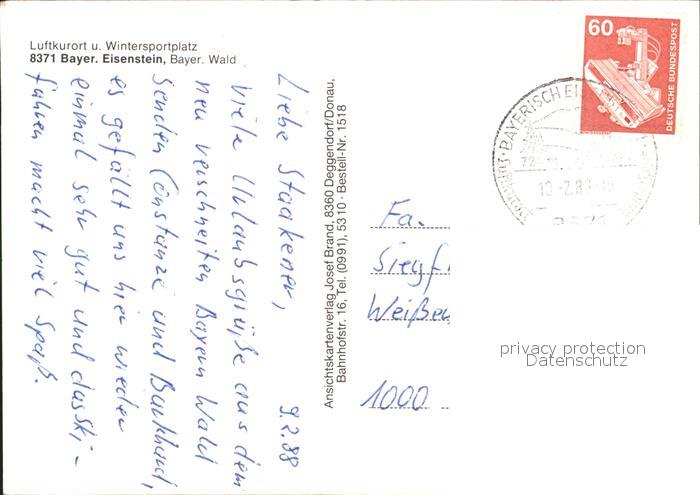 Luftkurort u. Wintersportplatz
8371 Bayer. Eisenstein, Bayer. Wald
Liebe Staakener,
9.2.88
viele Urlaubsgrüße aus dem
neu verschneiten Bayern Wald
senden Constanze und Burkhard,
es gefällt uns hier wieder
einmal sehr gut und das Ski-
fahren macht viel Spaß.
Ansichtskartenverlag Josef Brand, 8360 Deggendorf/Donau,
Bahnhofstr. 16, Tel. (0991), 5310 · Bestell-Nr. 1518
60
DEUTSCHE BUNDESPOST
BAYERISCH EI
8371
Fa.
Siegf
Weißen
1000
privacy protection
Datenschutz